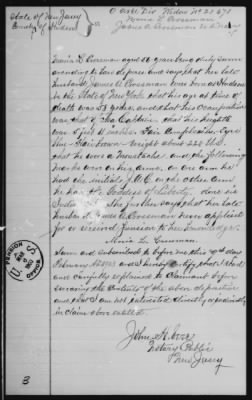 State of New Jersey
County of Hudson
Maria L Crossman aged 60 years being duly sworn
according to law deposes and says that her late
husband James A Crossman was born at Hudson
in the State of New York that his age at time of
death was 58 years, and that his occupation
was that of Sea Captain that his height
was 5 feet 11 inches. Fair Complexion Eyes
blue Hair brown weight about 225 lbs
that he wore a Moustache and the following
marks were on his arms, on one arm he
had the initials J. A. C. on the other arm
he had A Goddess of Liberty, done in
India Ink. She further says that her late
husband James A Crossman never applied
for a second Pension to her knowledge.
Maria L. Crossman
Sworn and subscribed to before me this day
February 1903 and I hereby certify that I read
and carefully explained to Claimant before
swearing the contents of the above deposition
and that I am not interested directly or indirectly
in claim above entitled.
John
Notary Public
New Jersey
PENSION
U. S.
OFFICE
3